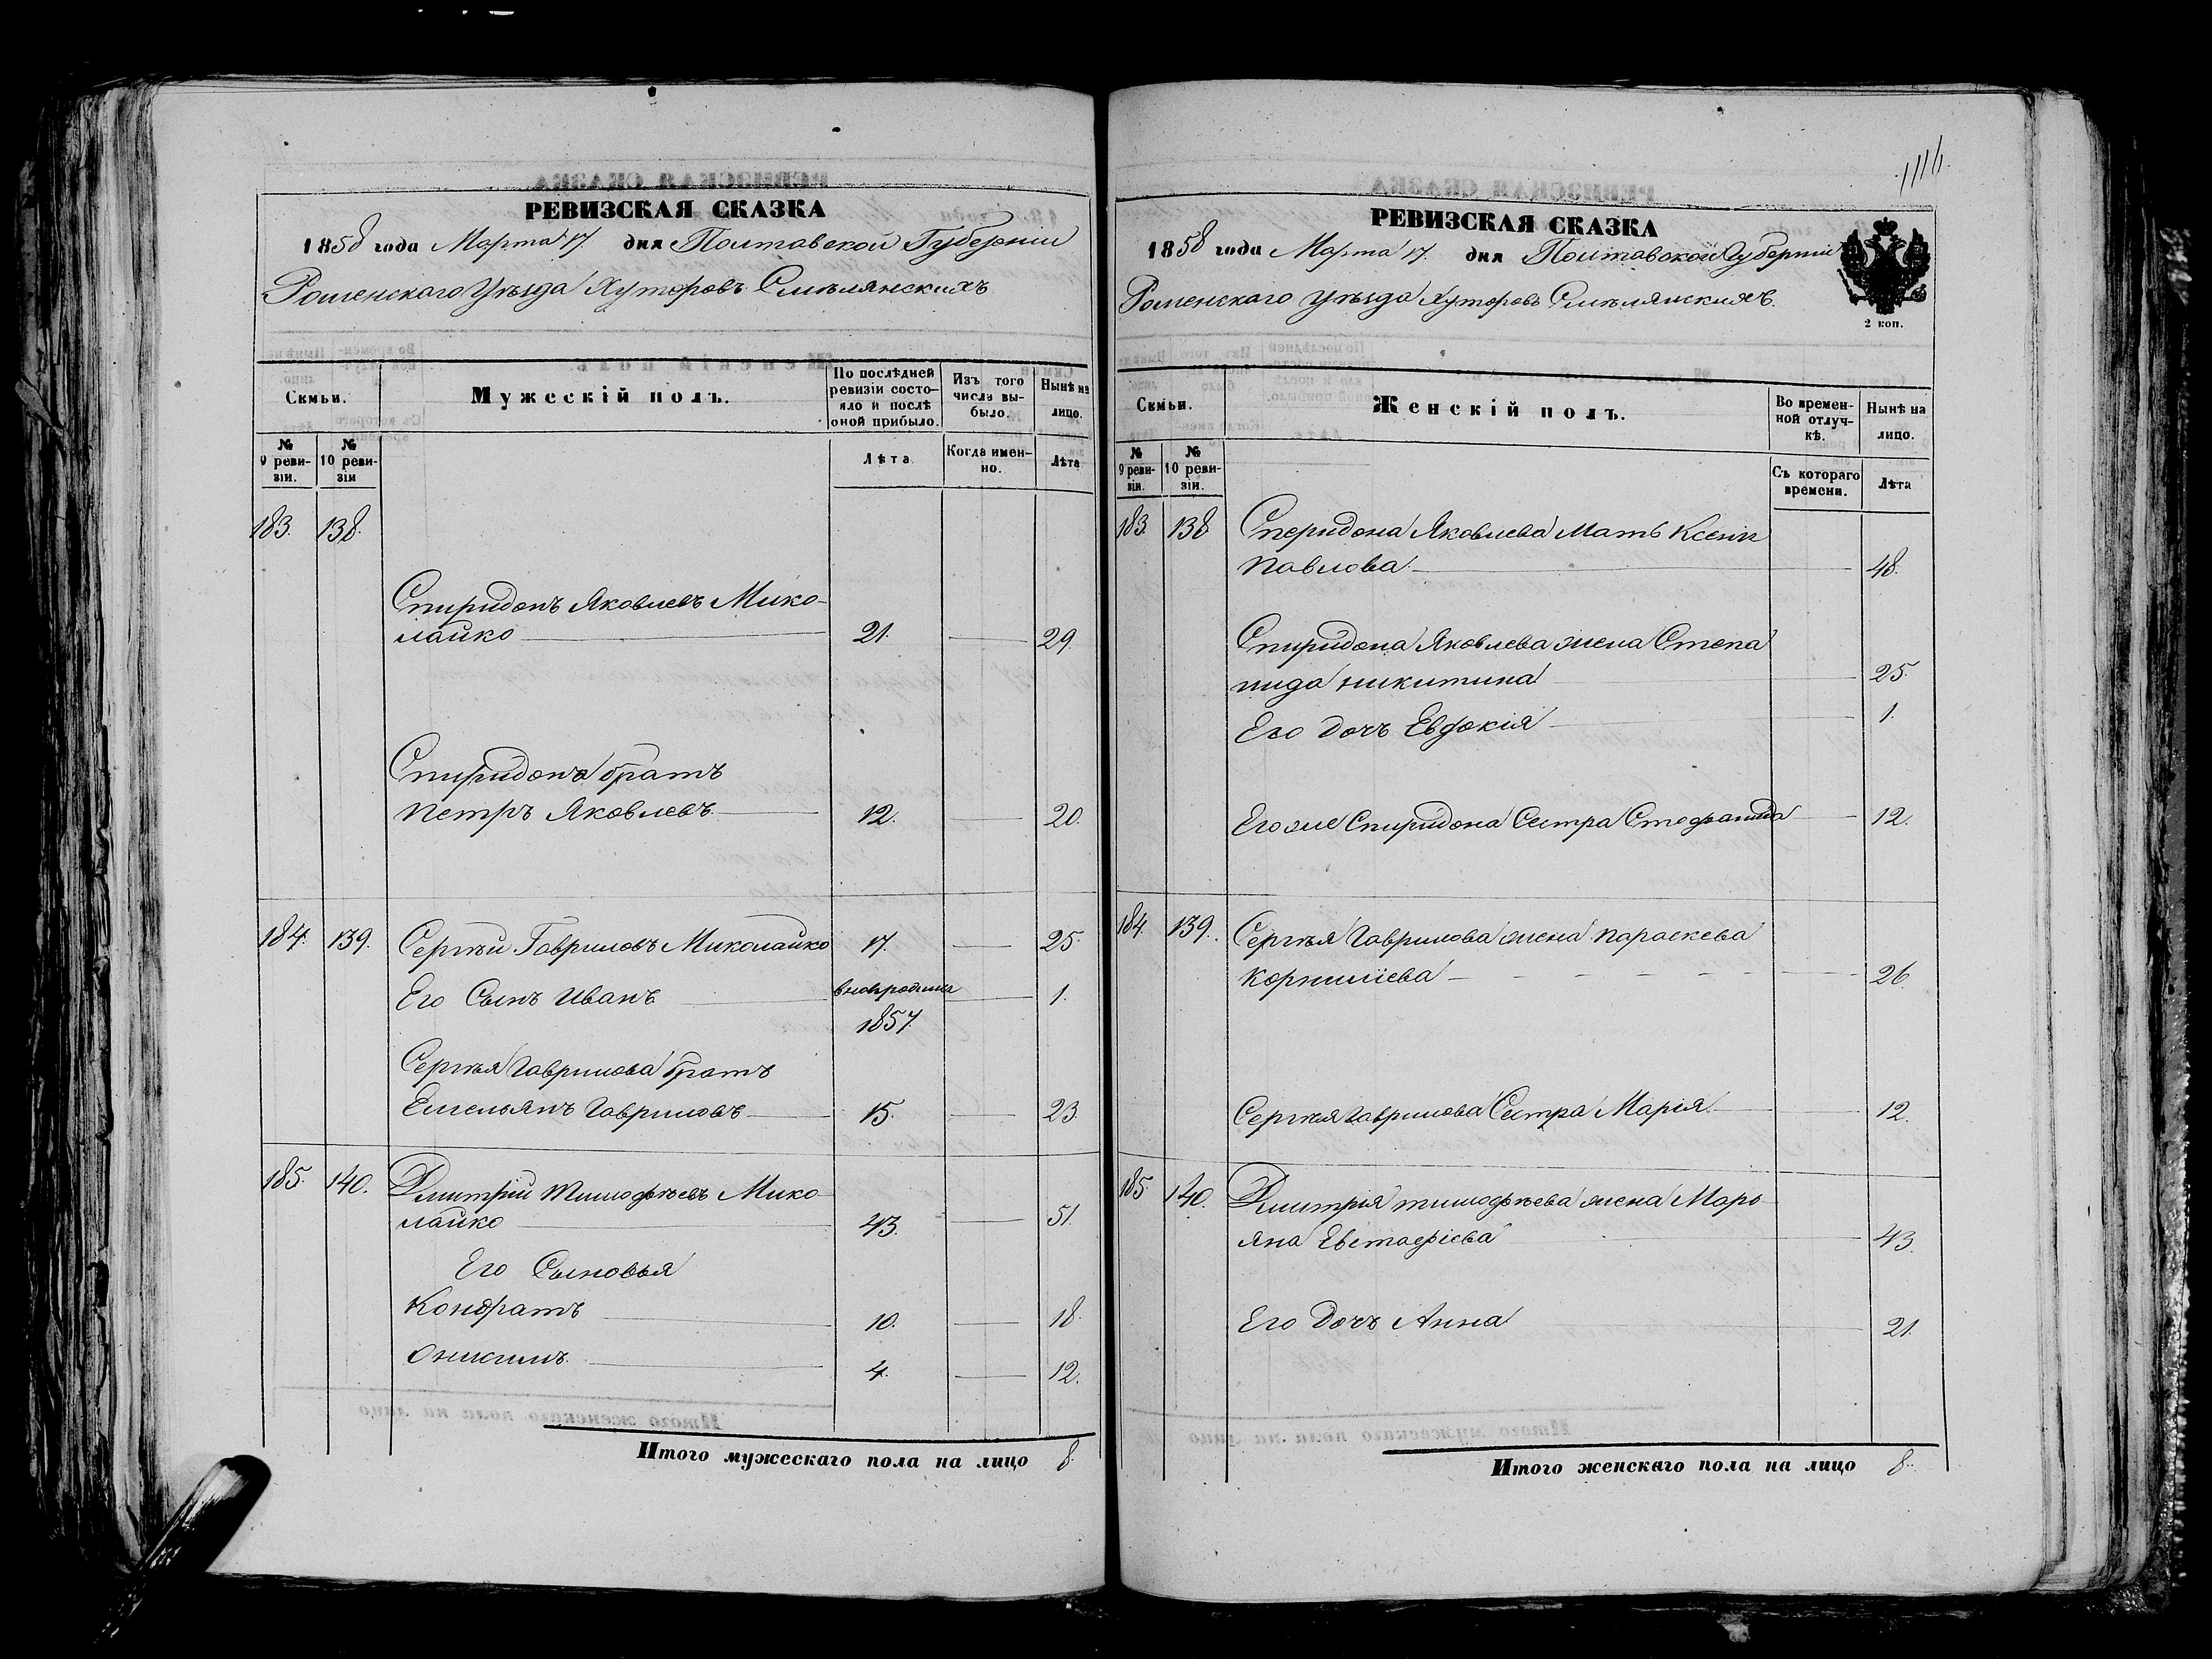 РЕВИЗСКАЯ СКАЗКА
1858 года Марта 17. дня Полтавской Губерніи
Роменскаго Уѣзда Хуторовъ Смѣлянскихъ
Семьи.
Мужескій полъ.
По послѣдней ревизіи состояло и послѣ оной прибыло.
Изъ того числа выбыло.
Нынѣ на лицо.
№ 9 ревизіи.
№ 10 ревизіи
Лѣта
Когда именно.
Лѣта
183. 138.
Спиридонъ Яковлевъ Мико-
лайко 21. 29.
Спиридона братъ
Петръ Яковлевъ 12. 20.
184. 139. Сергѣй Гавриловъ Миколайко 17. 25.
Его Сынъ Иванъ 1.
1857.
Сергѣя Гаврилова братъ
Емельянъ Гавриловъ 15. 23.
185. 140. Дмитрій Тимофѣевъ Мико
лайко 43. 51.
Его Сыновья
Кондратъ 10. 18.
Онисимъ 4. 12.
Итого мужескаго пола на лицо 8.
1116.
РЕВИЗСКАЯ СКАЗКА
1858 года Марта 17. дня Полтавской Губерніи
Роменскаго Уѣзда Хуторовъ Смѣлянскихъ.
2 коп.
Семьи.
Женскій полъ.
Во временной отлучкѣ.
Нынѣ на лицо.
№ 9 ревизіи.
№ 10 ревизіи.
Съ котораго времени.
Лѣта
183. 138. Сперидона Яковлева Мать Ксенія
Павлова 48.
Спиридона Яковлева жена Степа
нида Никитина 25.
Его дочь Евдокія 1.
Его же Спиридона Сестра 12.
184. 139. Сергѣя Гаврилова жена Параскева
Корнилиева 26.
Сергѣя Гаврилова Сестра Марія 12.
185. 140. Дмитрія Тимофѣева жена Марь
яна Евстафіева 43.
Его Дочь Анна 21.
Итого женскаго пола на лицо 8.